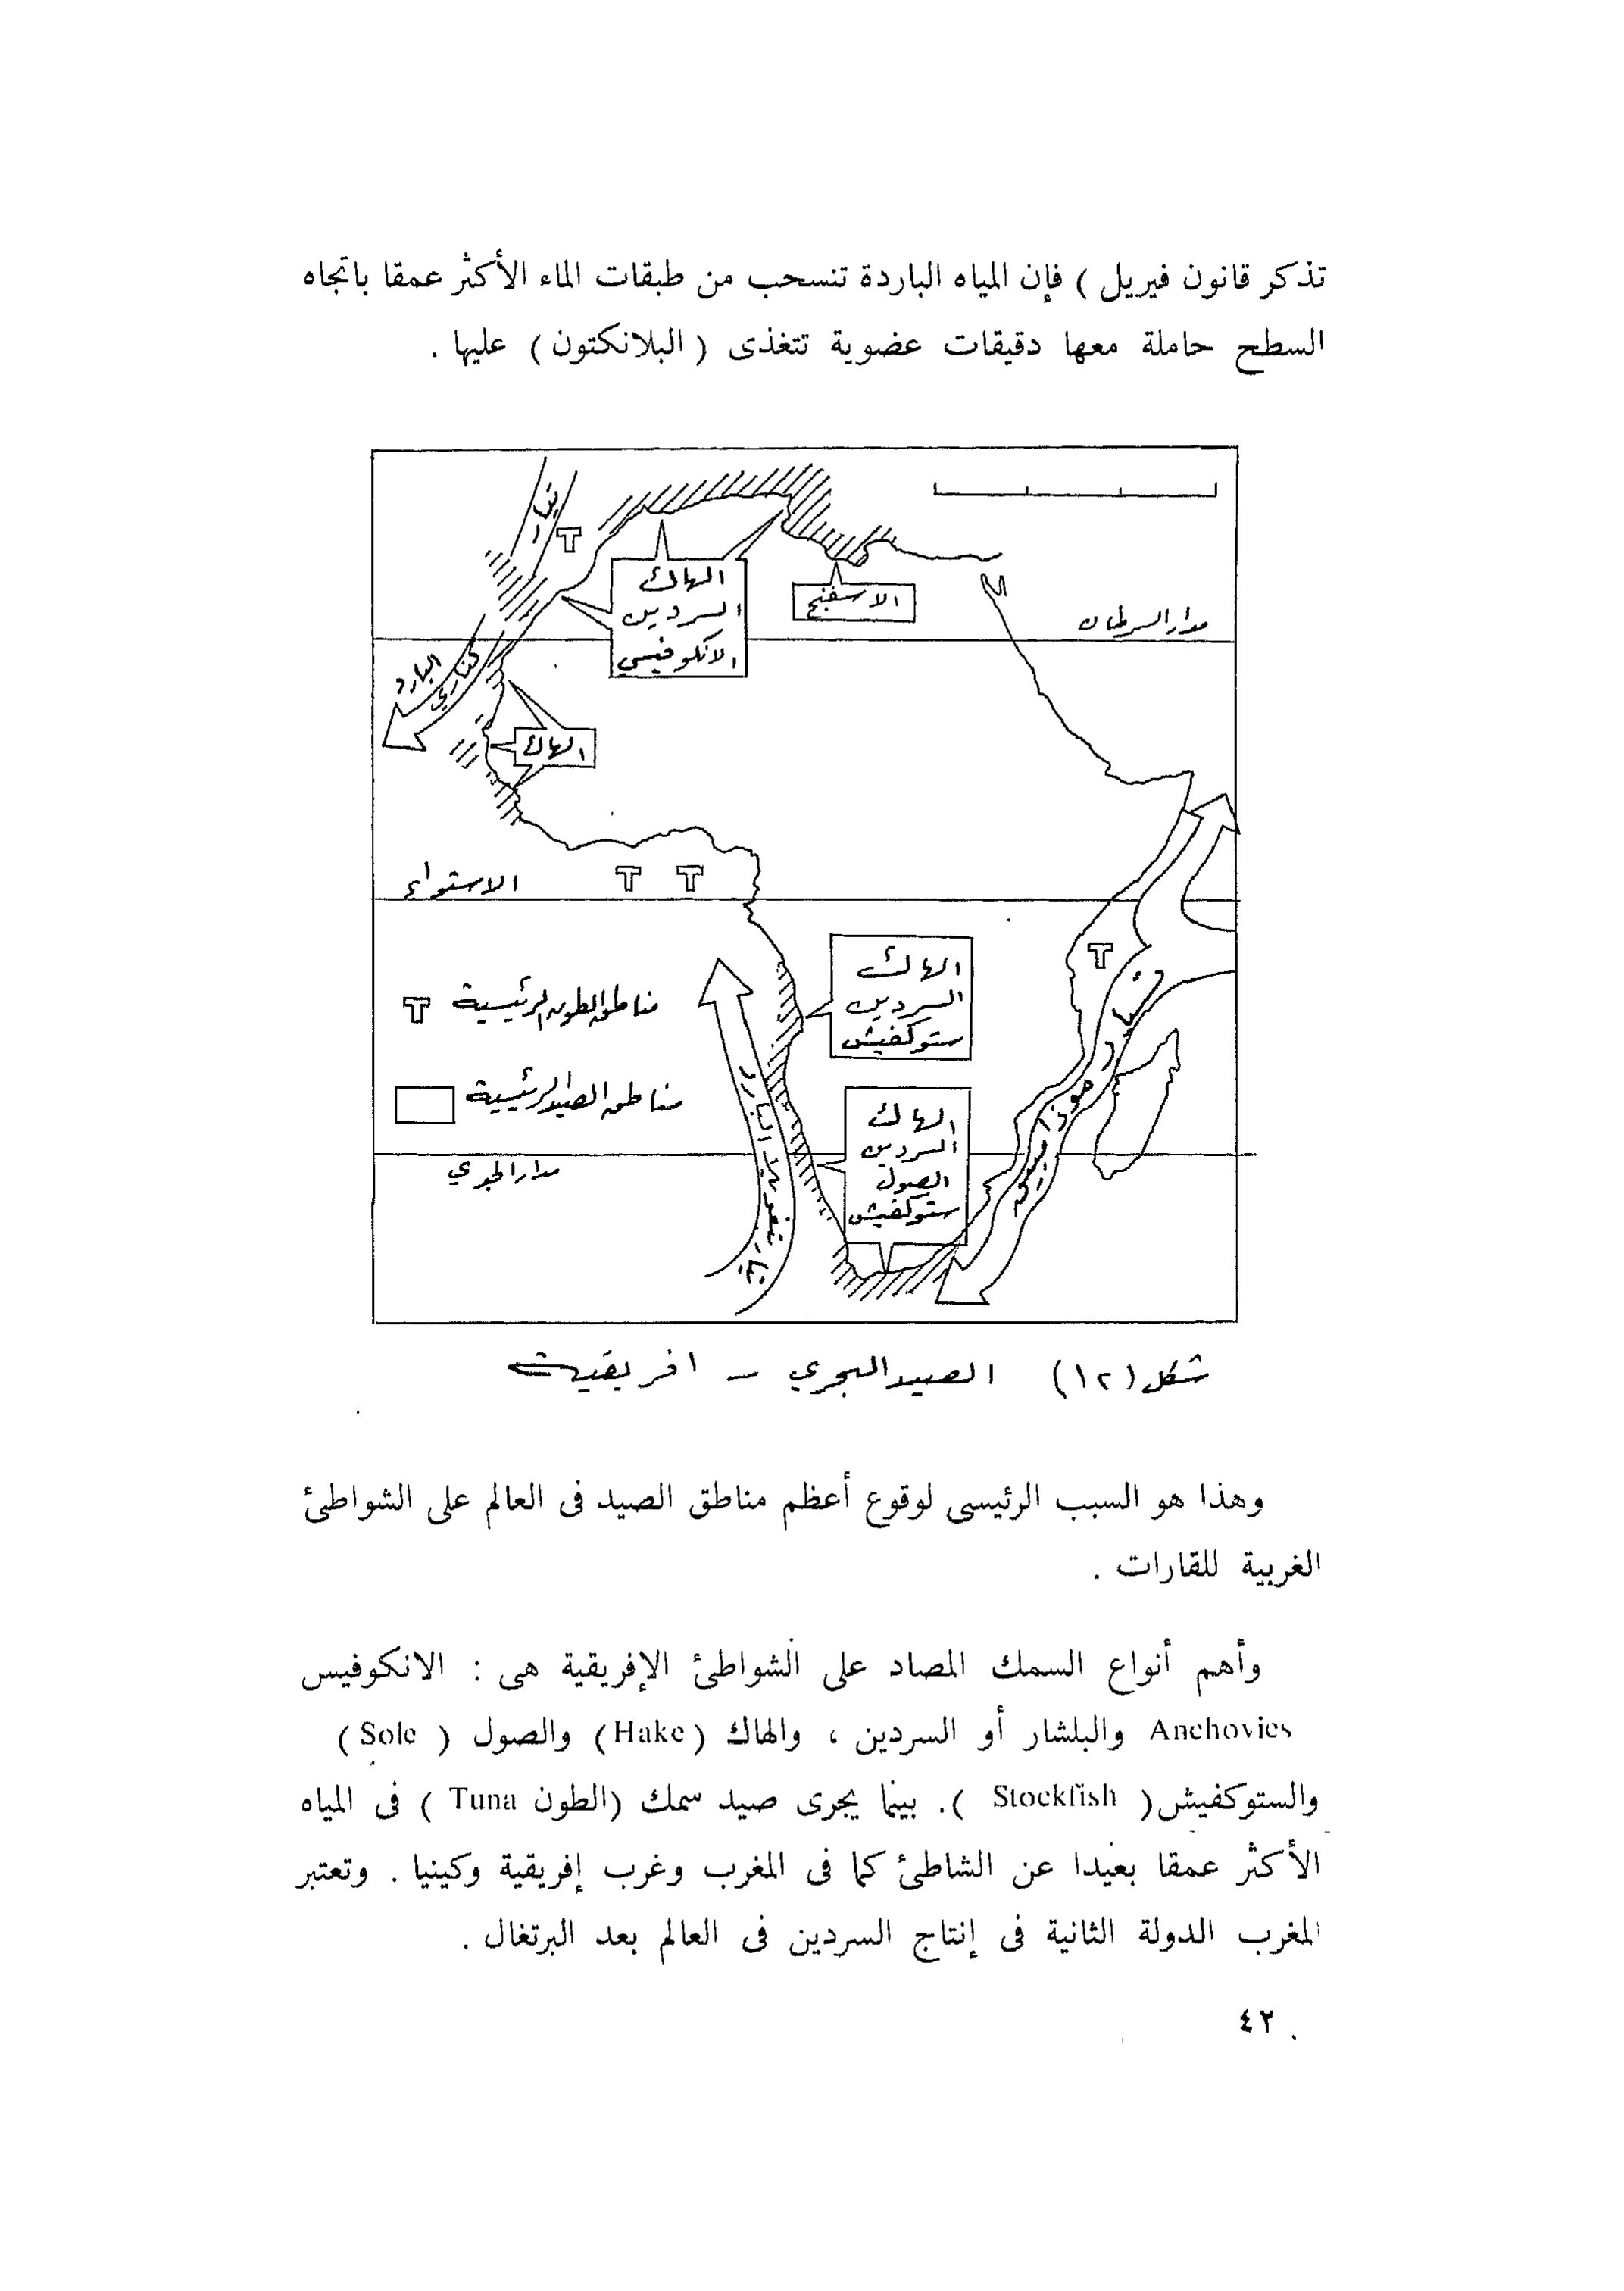 تذكر قانون فيريل ) فإن المياه الباردة تنسحب من طبقات الماء الأكثر عمقا باتجاه
السطح حاملة معها دقيقات عضوية تتغذى ( البلانكتون ) عليها .
تيار
T
الهاك
السردين
الانكوفيسي
الاسفنج
مدار السرطان
كناري
البارد
الهاك
الاستواء
T T
T
الهاك
السردين
ستوكفيش
T مناطق الطون الرئيسية
مناطق الصيد الرئيسية
تيار موزامبيك
الهاك
السردين
الصول
ستوكفيش
مدار الجدي
تيار بنغويلا البارد
شكل (١٢) الصيد البحري – افريقيت
وهذا هو السبب الرئيسى لوقوع أعظم مناطق الصيد فى العالم على الشواطئ
الغربية للقارات .
وأهم أنواع السمك المصاد على الشواطئ الإفريقية هى : الانكوفيس
Anchovies والبلشار أو السردين ، والهاك (Hake) والصول ( Sole )
والستوكفيش ( Stockfish ). بينما يجرى صيد سمك (الطون Tuna ) فى المياه
الأكثر عمقا بعيدا عن الشاطئ كما فى المغرب وغرب إفريقية وكينيا . وتعتبر
المغرب الدولة الثانية فى إنتاج السردين فى العالم بعد البرتغال .
٤٢